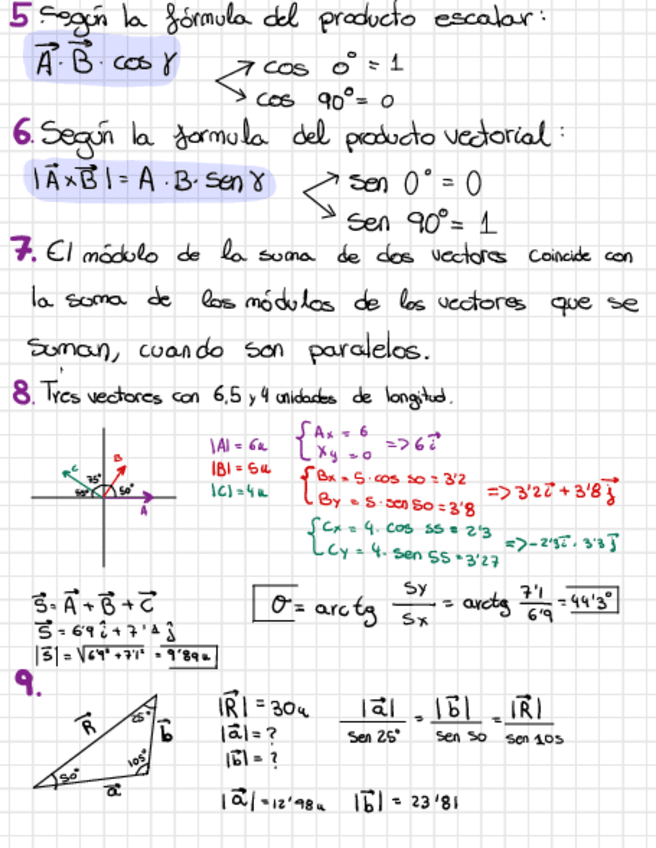 5 Según la fórmula del producto escalar:
A⃗ · B⃗ · cos γ
cos 0° = 1
cos 90° = 0
6. Según la formula del producto vectorial:
|A⃗ x B⃗| = A · B · sen γ
sen 0° = 0
sen 90° = 1
7. El módulo de la suma de dos vectores coincide con
la suma de los módulos de los vectores que se
suman, cuando son paralelos.
8. Tres vectores con 6,5 y 4 unidades de longitud.
C
B
75°
55°
50°
A
|A| = 6u
|B| = 5u
|C| = 4u
Ax = 6
Xy = 0
=> 6 i⃗
Bx = 5 · cos 50 = 3'2
By = 5 · sen 50 = 3'8
=> 3'2 i⃗ + 3'8 j⃗
Cx = 4 · cos 55 = 2'3
Cy = 4 · sen 55 = 3'27
=> -2'3 i⃗ · 3'3 j⃗
S⃗ = A⃗ + B⃗ + C⃗
S⃗ = 6'9 i⃗ + 7'1 j⃗
|S⃗| = √6'9² + 7'1² = 9'89u
σ = arctg Sy/Sx = arctg 7'1/6'9 = 44'3°
9.
R⃗
25°
b⃗
105°
50°
a⃗
|R⃗| = 30u
|a⃗| = ?
|b⃗| = ?
|a⃗|/sen 25° = |b⃗|/sen 50 = |R⃗|/sen 105
|a⃗| = 12'98u |b⃗| = 23'81